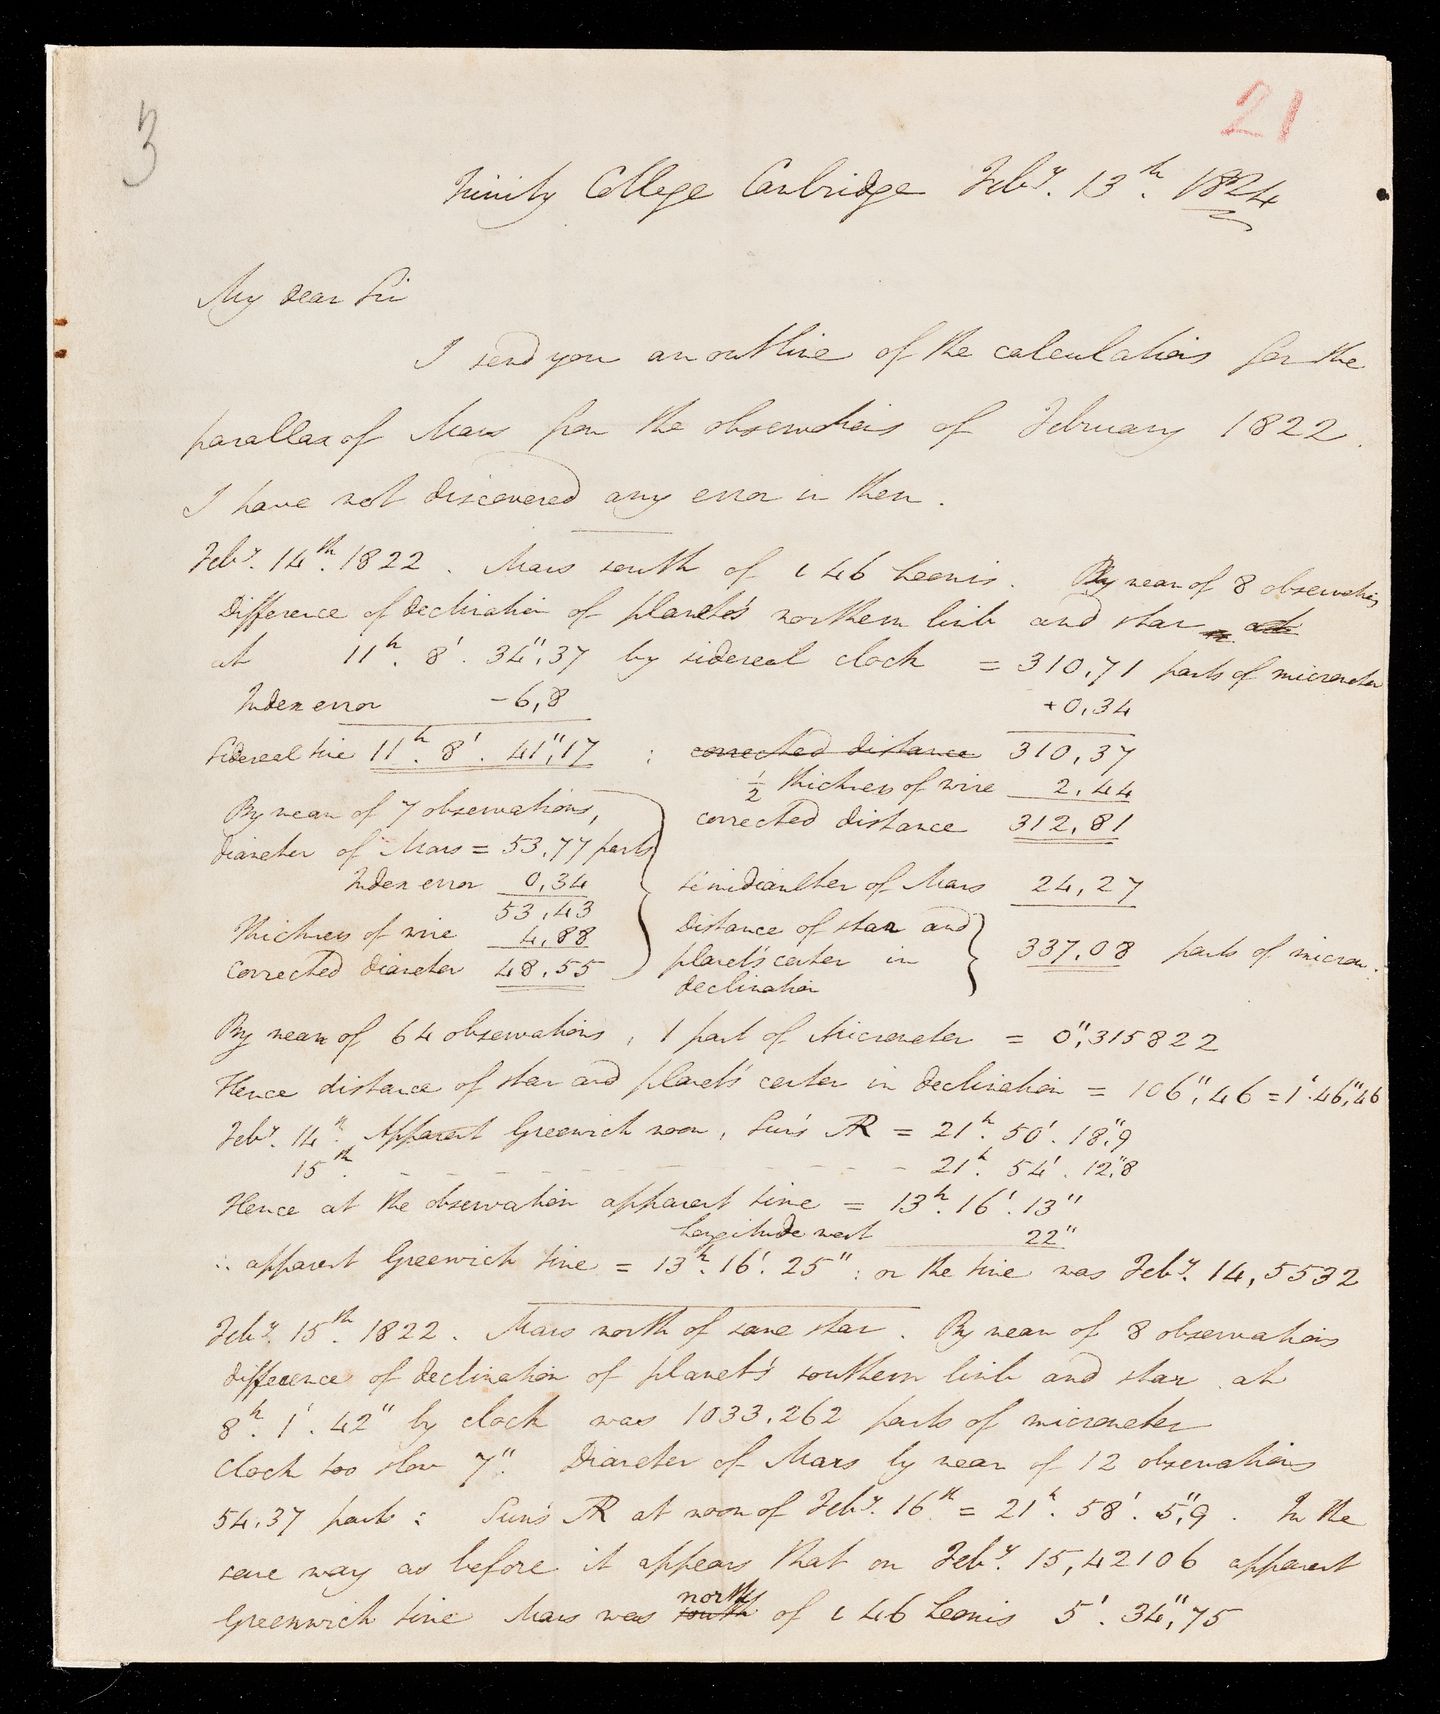 3
21
Trinity College Cambridge Feby. 13th. 1824
My dear Sir
I send you an outline of the calculations for the
parallax of Mars from the observations of February 1822.
I have not discovered any error in them.
Feby. 14th. 1822. Mars south of i 46 Leonis. By mean of 8 observations
difference of declination of planet's northern limb and star
at 11h. 8'. 34",37 by sidereal clock = 310,71 parts of micrometer
Index error -6,8 +0,34
Sidereal time 11h. 8'. 41",17 : corrected distance 310,37
½ thickness of wire 2,44
By mean of 7 observations, corrected distance 312,81
diameter of Mars = 53,77 parts
Index error 0,34 semidiameter of Mars 24,27
53,43
Thickness of wire 4,88 Distance of star and
corrected diameter 48,55 planet's center in 337,08 parts of microm.
declination
By mean of 64 observations, 1 part of Micrometer = 0",315822
Hence distance of star and planet's center in declination = 106",46 = 1'.46",46
Feby. 14th. Apparent Greenwich noon, Sun's AR = 21h. 50'. 18",9
15th. - - - - - - - - 21h. 54'. 12",8
Hence at the observation apparent time = 13h. 16'. 13"
Longitude west 22"
∴ apparent Greenwich time = 13h. 16'. 25" : or the time was Feby. 14,5532
Feby. 15th. 1822. Mars north of same star. By mean of 8 observations
difference of declination of planet's southern limb and star at
8h. 1'. 42" by clock was 1033,262 parts of micrometer
clock too slow 7". Diameter of Mars by mean of 12 observations
54,37 parts : Sun's AR at noon of Feby. 16th = 21h. 58'. 5",9. In the
same way as before it appears that on Feby. 15,42106 apparent
Greenwich time Mars was south north of i 46 Leonis 5'. 34",75